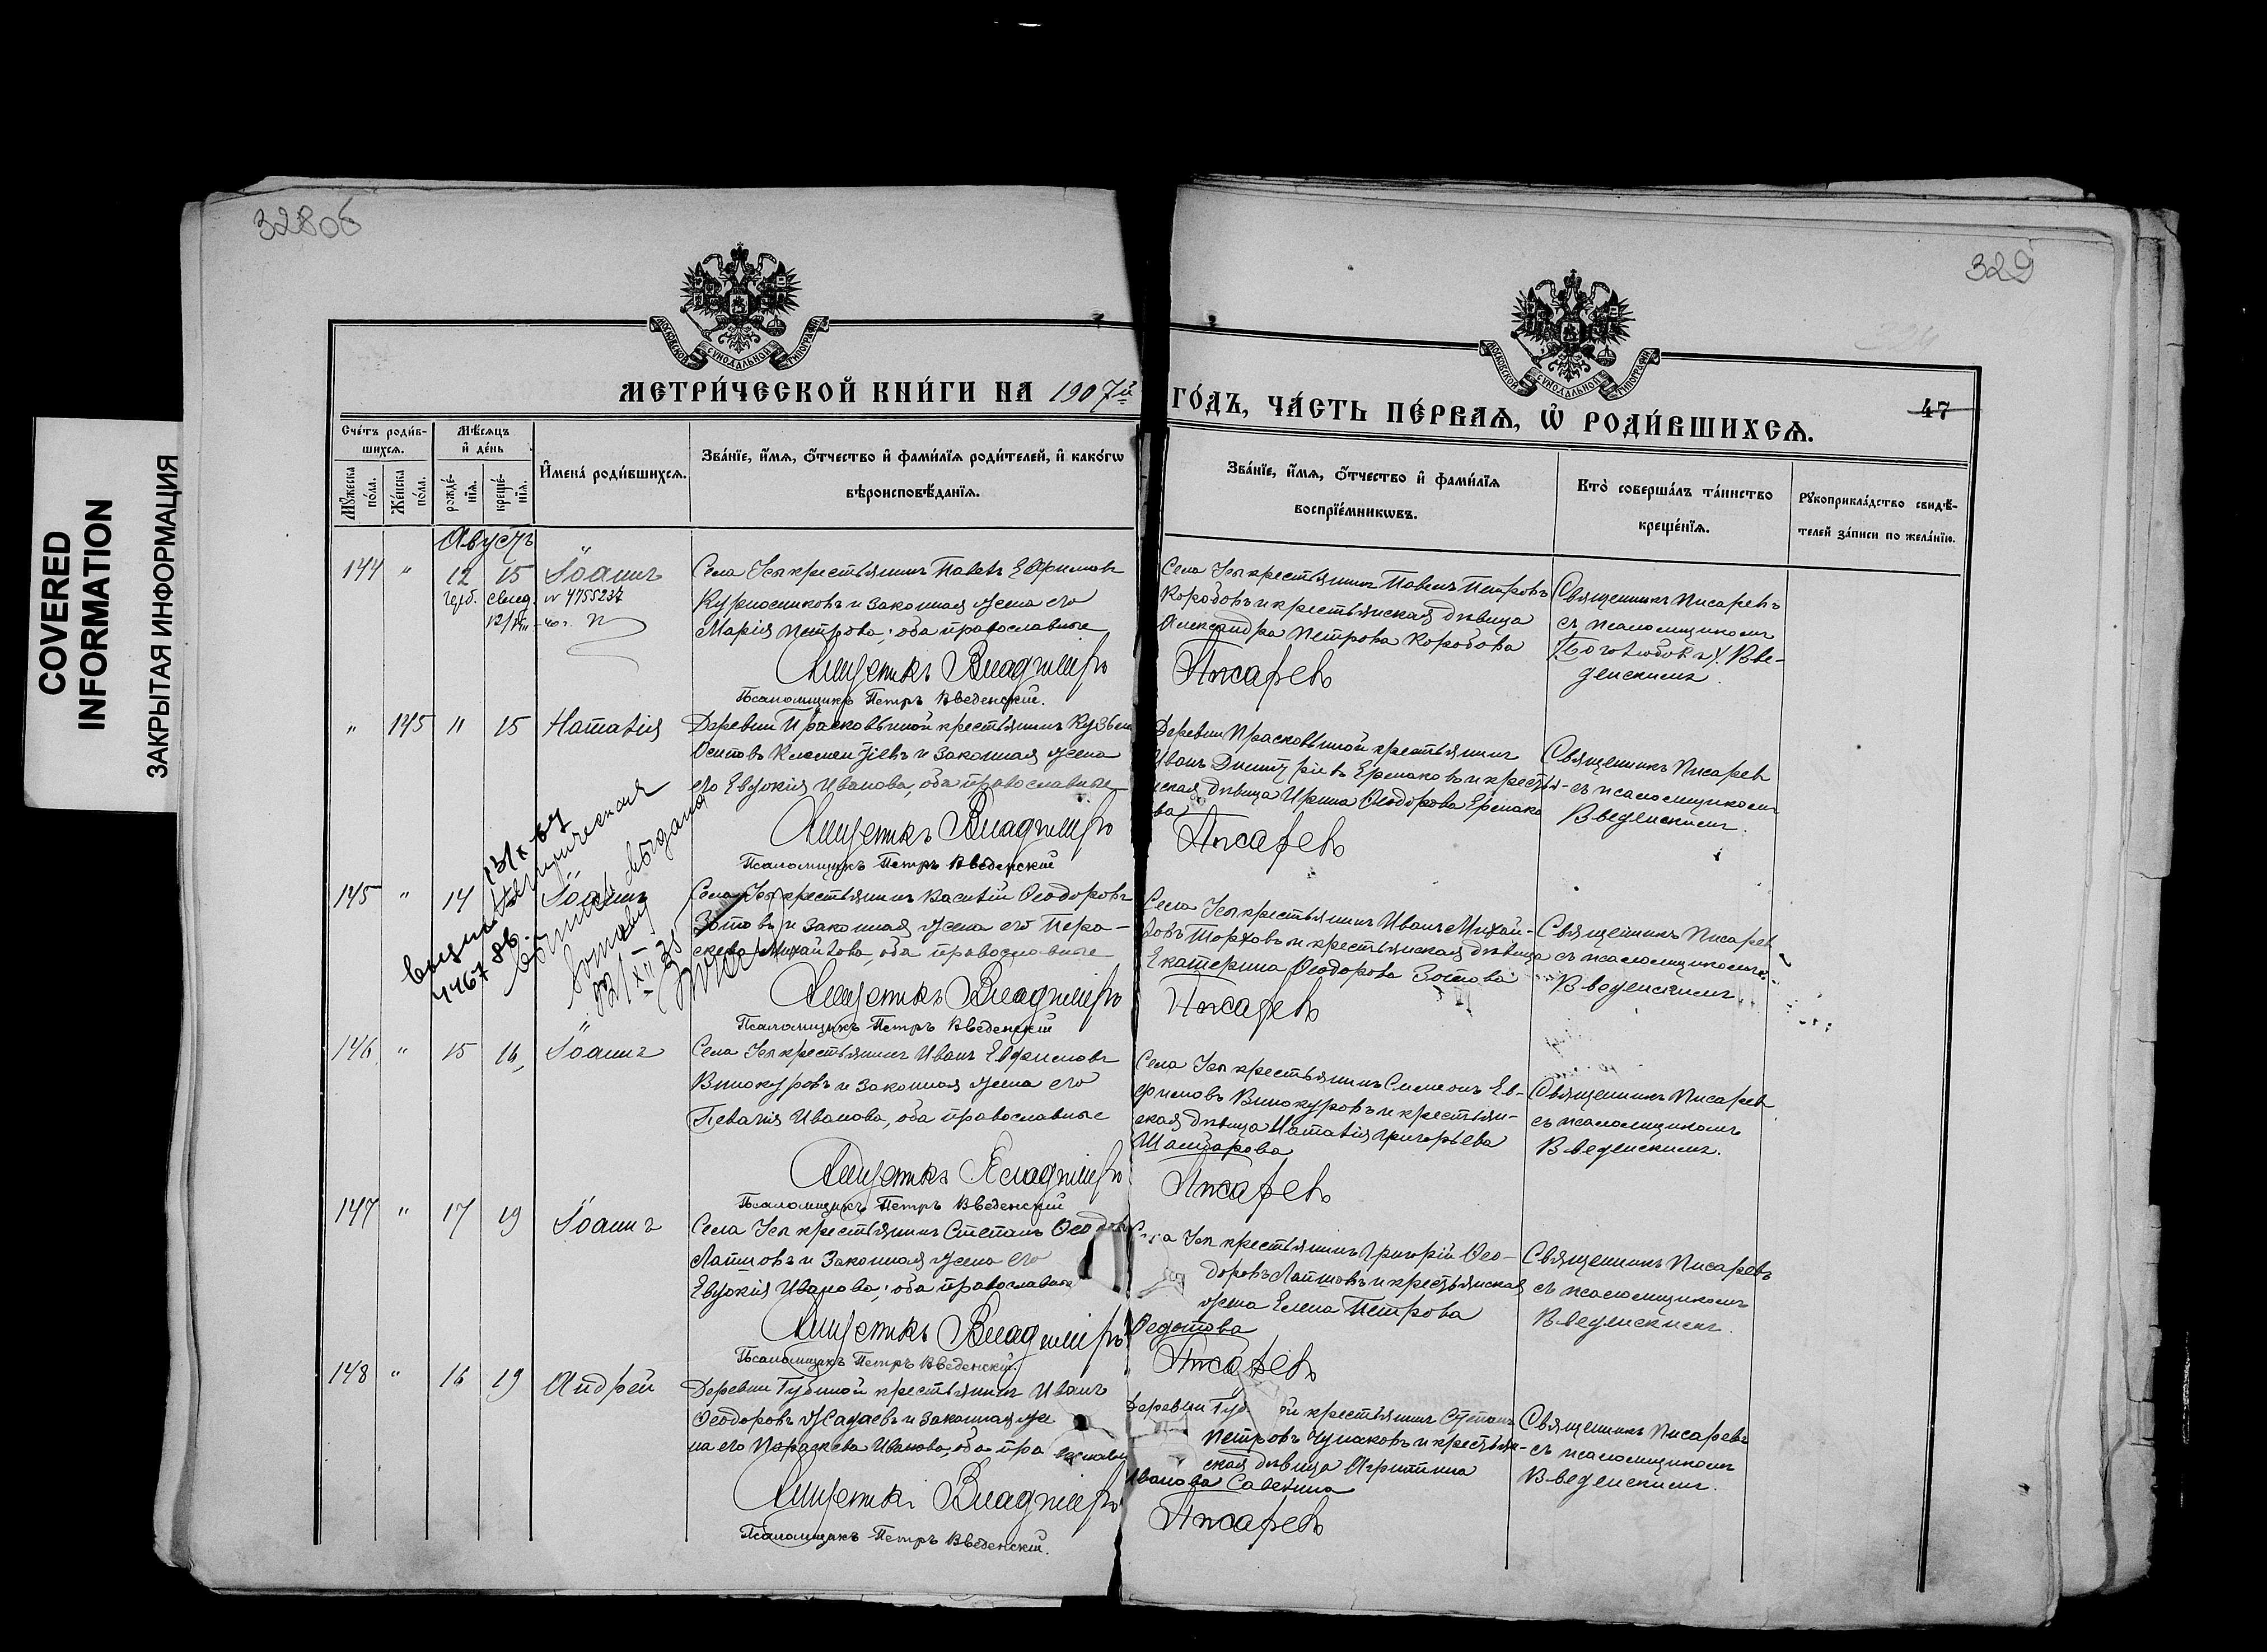 COVERED
INFORMATION
ЗАКРЫТАЯ ИНФОРМАЦИЯ
328об
329
МОСКОВСКОЙ СѴНОДАЛЬНОЙ ТИПОГРАФІИ
МОСКОВСКОЙ СѴНОДАЛЬНОЙ ТИПОГРАФІИ
МЕТРИ́ЧЕСКОЙ КНИ́ГИ НА 1907й
ГО́ДЪ, ЧА́СТЬ ПЕ́РВАЯ, Ѡ҆ РОДИ́ВШИХСЯ.
47
Сче́тъ роди́в-
шихся.
Мѣ́сяцъ
и҆ де́нь
Мꙋ́жеска по́ла.
Же́нска по́ла.
рожде́-нїѧ.
креще́-нїѧ.
И҆мена̀ роди́вшихся.
Зва́нїе, и҆́мѧ, ѻ҆́тчество и҆ фами́лїѧ роди́телей, и҆ како́гѡ
вѣроисповѣ́данїѧ.
Зва́нїе, и҆́мѧ, ѻ҆́тчество и҆ фами́лїѧ
воспрїе́мникѡвъ.
Кто̀ соверша́лъ та́инство
креще́нїѧ.
Рꙋкоприкла́дство свидѣ́-
телей за́писи по жела́нїю.
Августъ
144 " 12 15 Іоаннъ
свид. № 4755237
Села Усы крестьянинъ Павелъ Ефимовъ
Курносиковъ и законная жена его
Марія Петрова; оба православные
Священникъ Владимiръ
Псаломщикъ Петръ Введенскій.
Села Усы крестьянинъ Павелъ Петровъ
Коробовъ и крестьянская дѣвица
Александра Петрова Коробова
Писаревъ
Священникъ Писаревъ
съ псаломщикомъ
Вве-
денскимъ
" 145 11 15 Наталія
Деревни Прасковьиной крестьянинъ Кузьма
Осиповъ Клементіевъ и законная жена
его Евдокія Иванова, оба православные
Священникъ Владимiръ
Псаломщикъ Петръ Введенскій
Деревни Прасковьиной крестьянинъ
Иванъ Димитріевъ Ермаковъ и крестья-
нская дѣвица Ирина Ѳеодорова Ермако
ва
Писаревъ
Священникъ Писарев
съ псаломщикомъ
Введенскимъ.
145 " 14 Іоаннъ
13/X-67
4467 86.
Села Усы крестьянинъ Василій Ѳеодоровъ
Зотовъ и законная жена его Пара-
скева Михайлова, оба православные
Священникъ Владимiръ
Псаломщикъ Петръ Введенскій
Села Усы крестьянинъ Иванъ Михай-
ловъ Торховъ и крестьянская дѣвица
Екатерина Ѳеодорова Зотова
Писаревъ
Священникъ Писарев
съ псаломщикомъ
Введенскимъ.
146 " 15 16 Іоаннъ
Села Усы крестьянинъ Иванъ Евфимовъ
Винокуровъ и законная жена его
Пелагія Иванова, оба православные
Священникъ Владимiръ
Псаломщикъ Петръ Введенскій
Села Усы крестьянинъ Симеонъ Ев-
фимовъ Винокуровъ и крестьян-
ская дѣвица Наталія Григорьева
Писаревъ
Священникъ Писарев
съ псаломщикомъ
Введенскимъ.
147 " 17 19 Іоаннъ
Села Усы крестьянинъ Степанъ Ѳеодоров
Лапшовъ и законная жена его
Евдокія Иванова; оба православные
Священникъ Владимiръ
Псаломщикъ Петръ Введенскій.
Села Усы крестьянинъ Григорій Ѳео-
доровъ Лапшовъ и крестьянская
жена Елена Петрова
Ѳедотова
Писаревъ
Священникъ Писаревъ
съ псаломщикомъ
Введенскимъ.
148 " 16 19 Андрей
Деревни Губиной крестьянинъ Иванъ
Ѳеодоровъ Жадаевъ и законная же
на его Параскева Иванова, оба православны
Священникъ Владимiръ
Псаломщикъ Петръ Введенскій.
Деревни Губ й крестьянинъ Степанъ
Петровъ Чумаковъ и крестьян-
ская дѣвица Агриппина
Иванова Савекина
Писаревъ
Священникъ Писаревъ
съ псаломщикомъ
Введенскимъ.